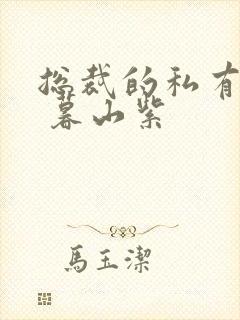 总裁的私有
暮山紫
馬玉潔